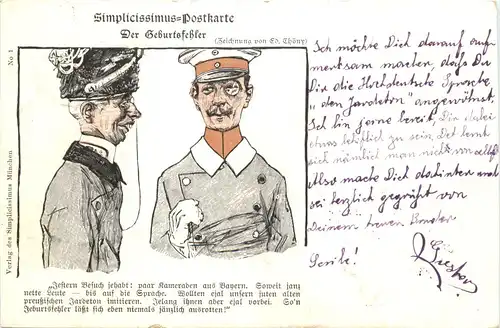 Simplicissimus=Postkarte
Der Geburtsfehler
(Zeichnung von Ed. Thöny)
No 1
Verlag des Simplicissimus München
„Jestern Besuch jehabt: paar Kameraden aus Bayern. Soweit janz
nette Leute — bis auf die Sprache. Wollten ejal unsern juten alten
preußischen Jardeton imitieren. Jelang ihnen aber ejal vorbei. So'n
Jeburtsfehler läßt sich eben niemals jänzlich ausrotten!"
Ich möchte Dich darauf auf-
merksam machen, daß Du
Dir die Hochdeutsche Sprache
„den Jardeton" angewöhnst
Ich bin gerne bereit, Dir dabei
etwas behilflich zu sein. Det lernt
sich nämlich man nicht von selbst
Also mache Dich dahinter und
sei herzlich gegrüßt von
Deinem treuen Bruder